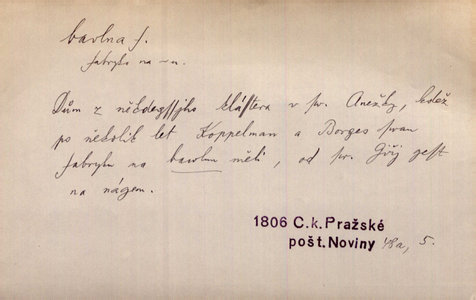 bavlna f.
fabryka na ~u.
Dům z někdegssjho kláſstera v sv. Anežky, kdež
po několik let Koppelman a Borges swau
fabryku na bawlnu měli, od sv. Giřj gest
na nágem.
1806 C.k.Pražské
pošt.Noviny 48a, 5.